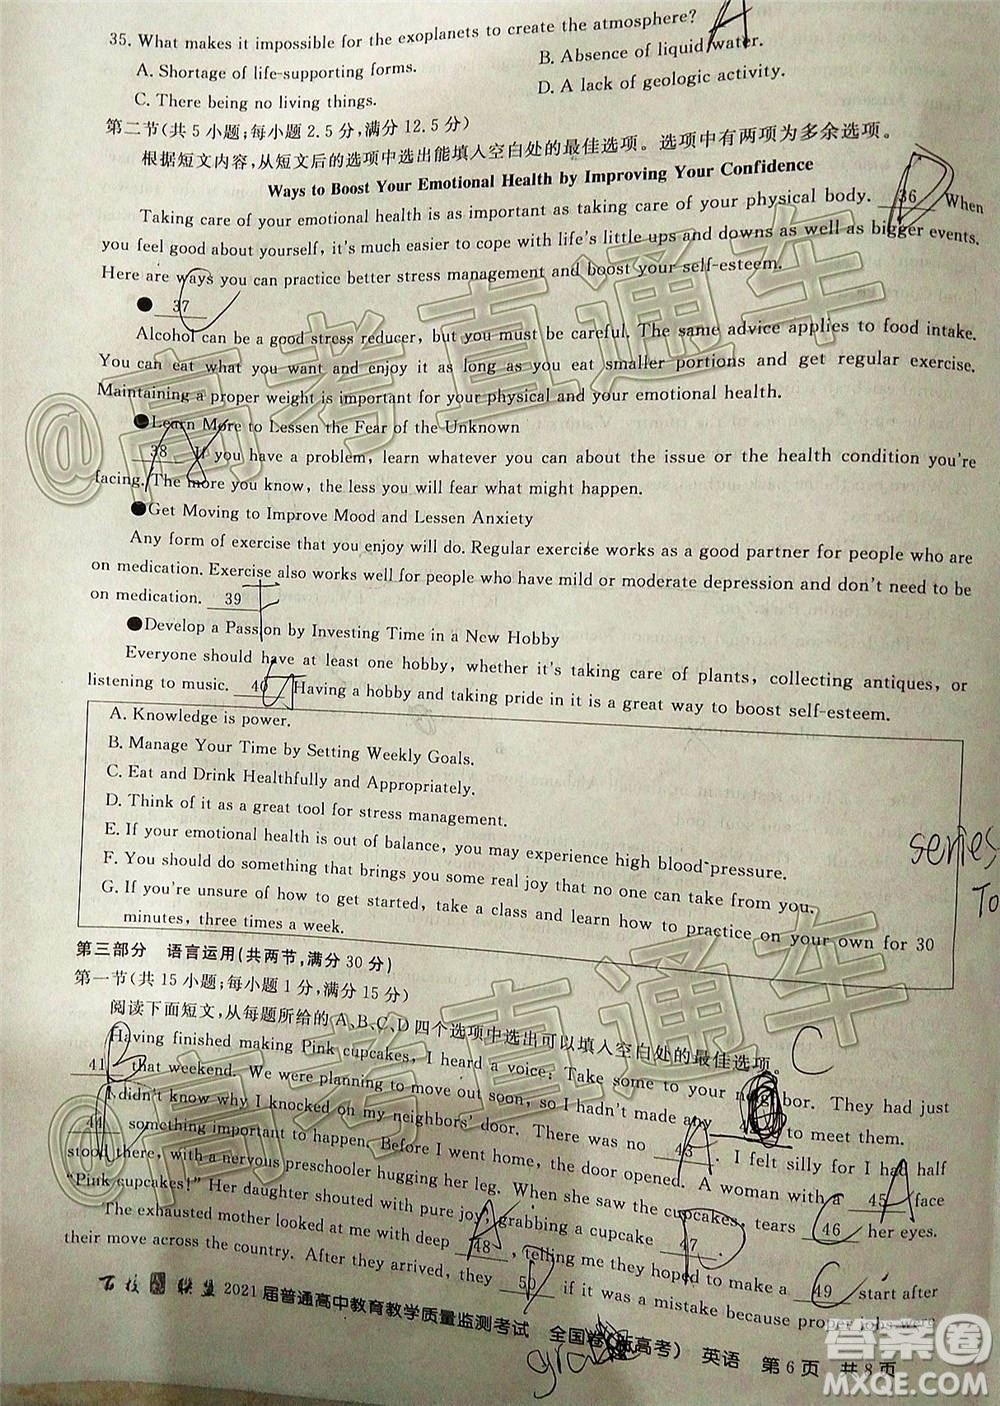 35. What makes it impossible for the exoplanets to create the atmosphere?
A. Shortage of life-supporting forms.
B. Absence of liquid water.
C. There being no living things.
D. A lack of geologic activity.
第二节(共 5 小题;每小题 2.5 分,满分 12.5 分)
根据短文内容,从短文后的选项中选出能填入空白处的最佳选项。选项中有两项为多余选项。
Ways to Boost Your Emotional Health by Improving Your Confidence
Taking care of your emotional health is as important as taking care of your physical body. 36 When
you feel good about yourself, it's much easier to cope with life's little ups and downs as well as bigger events.
Here are ways you can practice better stress management and boost your self-esteem.
● 37
Alcohol can be a good stress reducer, but you must be careful. The same advice applies to food intake.
You can eat what you want and enjoy it as long as you eat smaller portions and get regular exercise.
Maintaining a proper weight is important for your physical and your emotional health.
●Learn More to Lessen the Fear of the Unknown
38 If you have a problem, learn whatever you can about the issue or the health condition you're
facing. The more you know, the less you will fear what might happen.
●Get Moving to Improve Mood and Lessen Anxiety
Any form of exercise that you enjoy will do. Regular exercise works as a good partner for people who are
on medication. Exercise also works well for people who have mild or moderate depression and don't need to be
on medication. 39
●Develop a Passion by Investing Time in a New Hobby
Everyone should have at least one hobby, whether it's taking care of plants, collecting antiques, or
listening to music. 40 Having a hobby and taking pride in it is a great way to boost self-esteem.
A. Knowledge is power.
B. Manage Your Time by Setting Weekly Goals.
C. Eat and Drink Healthfully and Appropriately.
D. Think of it as a great tool for stress management.
E. If your emotional health is out of balance, you may experience high blood pressure.
F. You should do something that brings you some real joy that no one can take from you.
G. If you're unsure of how to get started, take a class and learn how to practice on your own for 30
minutes, three times a week.
series
To
第三部分 语言运用(共两节,满分 30 分)
第一节(共 15 小题;每小题 1 分,满分 15 分)
阅读下面短文,从每题所给的 A、B、C、D 四个选项中选出可以填入空白处的最佳选项。
Having finished making Pink cupcakes, I heard a voice: Take some to your neighbor. They had just
41 that weekend. We were planning to move out soon, so I hadn't made any to meet them.
I didn't know why I knocked on my neighbors' door. There was no 43 . I felt silly for I had half
44 something important to happen. Before I went home, the door opened. A woman with a 45 face
stood there, with a nervous preschooler hugging her leg. When she saw the cupcakes, tears 46 her eyes.
"Pink cupcakes!" Her daughter shouted with pure joy, grabbing a cupcake 47 .
The exhausted mother looked at me with deep 48 , telling me they had hoped to make a 49 start after
their move across the country. After they arrived, they 50 if it was a mistake because proper jobs were
百校联盟 2021 届普通高中教育教学质量监测考试 全国卷(新高考) 英语 第 6 页 共 8 页
@高考直通车
@高考直通车
答案圈
MXQE.COM